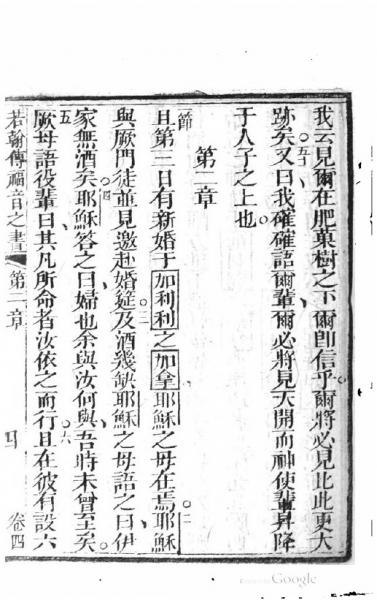 我云見爾在肥菓樹之下爾卽信乎爾將必見比此更大
跡矣五十又曰我確確語爾輩爾必將見天開而神使輩昇降
于人子之上也
第二章
節
且第三日有新婚于加利利之加拿耶穌之母在焉二耶穌
與厥門徒並見邀赴婚筵三及酒幾缺耶穌之母語之曰伊
家無酒矣四耶穌答之曰婦也余與汝何與吾時未曾至矣
五厥母語役輩曰其凡所命者汝依之而行六且在彼有設六
若翰傳福音之書 第二章 四 卷四
Google